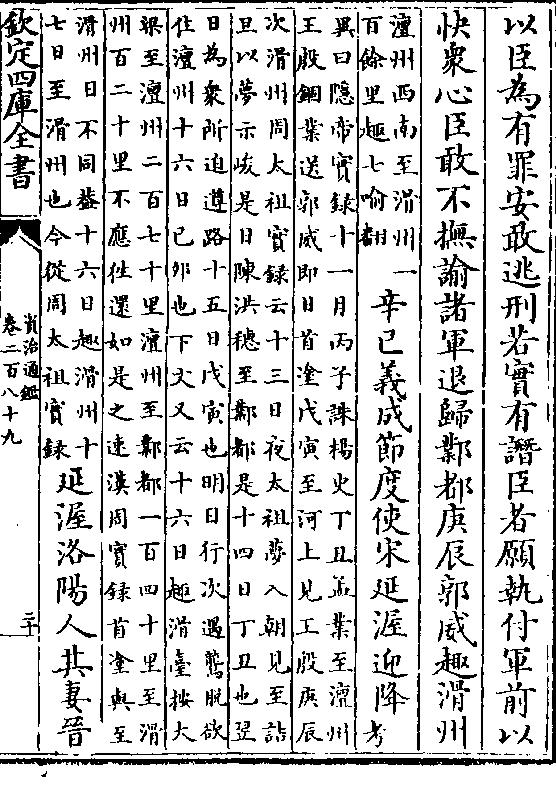 以臣為有罪安敢逃刑若實有譖臣者願執付軍前以
快衆心臣敢不撫諭諸軍退歸鄴都庚辰郭威趣滑州
澶州西南至滑州一
百餘里趣七喻翻
辛巳義成節度使宋延渥迎降考
異曰隱帝實録十一月丙子誅楊史丁丑孟業至澶州
王殷錮業送郭威即日首塗戊寅至河上見王殷庚辰
次滑州周太祖實録云十三日夜太祖夢入朝見至詰
旦以夢示峻是日陳洪穗至鄴都是十四日丁丑也翌
日為衆所迫遵路十五日戊寅也明日行次遇鶩脱欲
住澶州十六日己夘也下文又云十六日趣滑臺按大
梁至澶州二百七十里澶州至鄴都一百四十里至滑
州百二十里不應徃還如是之速漢周實録首塗與至
滑州日不同葢十六日趣滑州十
七日至滑州也今從周太祖實録
延渥洛陽人其妻晉
欽定四庫全書
資治通鑑
卷二百八十九
二十